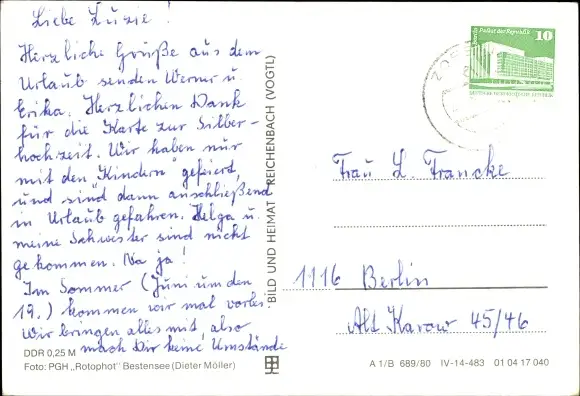 Liebe Luzie!
Herzliche Grüße aus dem
Urlaub senden Werner u.
Erika. Herzlichen Dank
für die Karte zur Silber-
hochzeit. Wir haben nur
mit den "Kindern" gefeiert,
und sind dann anschließend
in Urlaub gefahren. Helga u.
meine Schwester sind nicht
gekommen. Na ja!
Im Sommer (Juni um den
19.) kommen wir mal vorbei.
Wir bringen alles mit, also
mach Dir keine Umstände
DDR 0,25 M
Foto: PGH „Rotophot" Bestensee (Dieter Möller)
BILD UND HEIMAT REICHENBACH (VOGTL)
Palast der Republik
10
Frau L. Francke
1116 Berlin
Alt Karow 45/46
A 1/B 689/80 IV-14-483 01 04 17 040